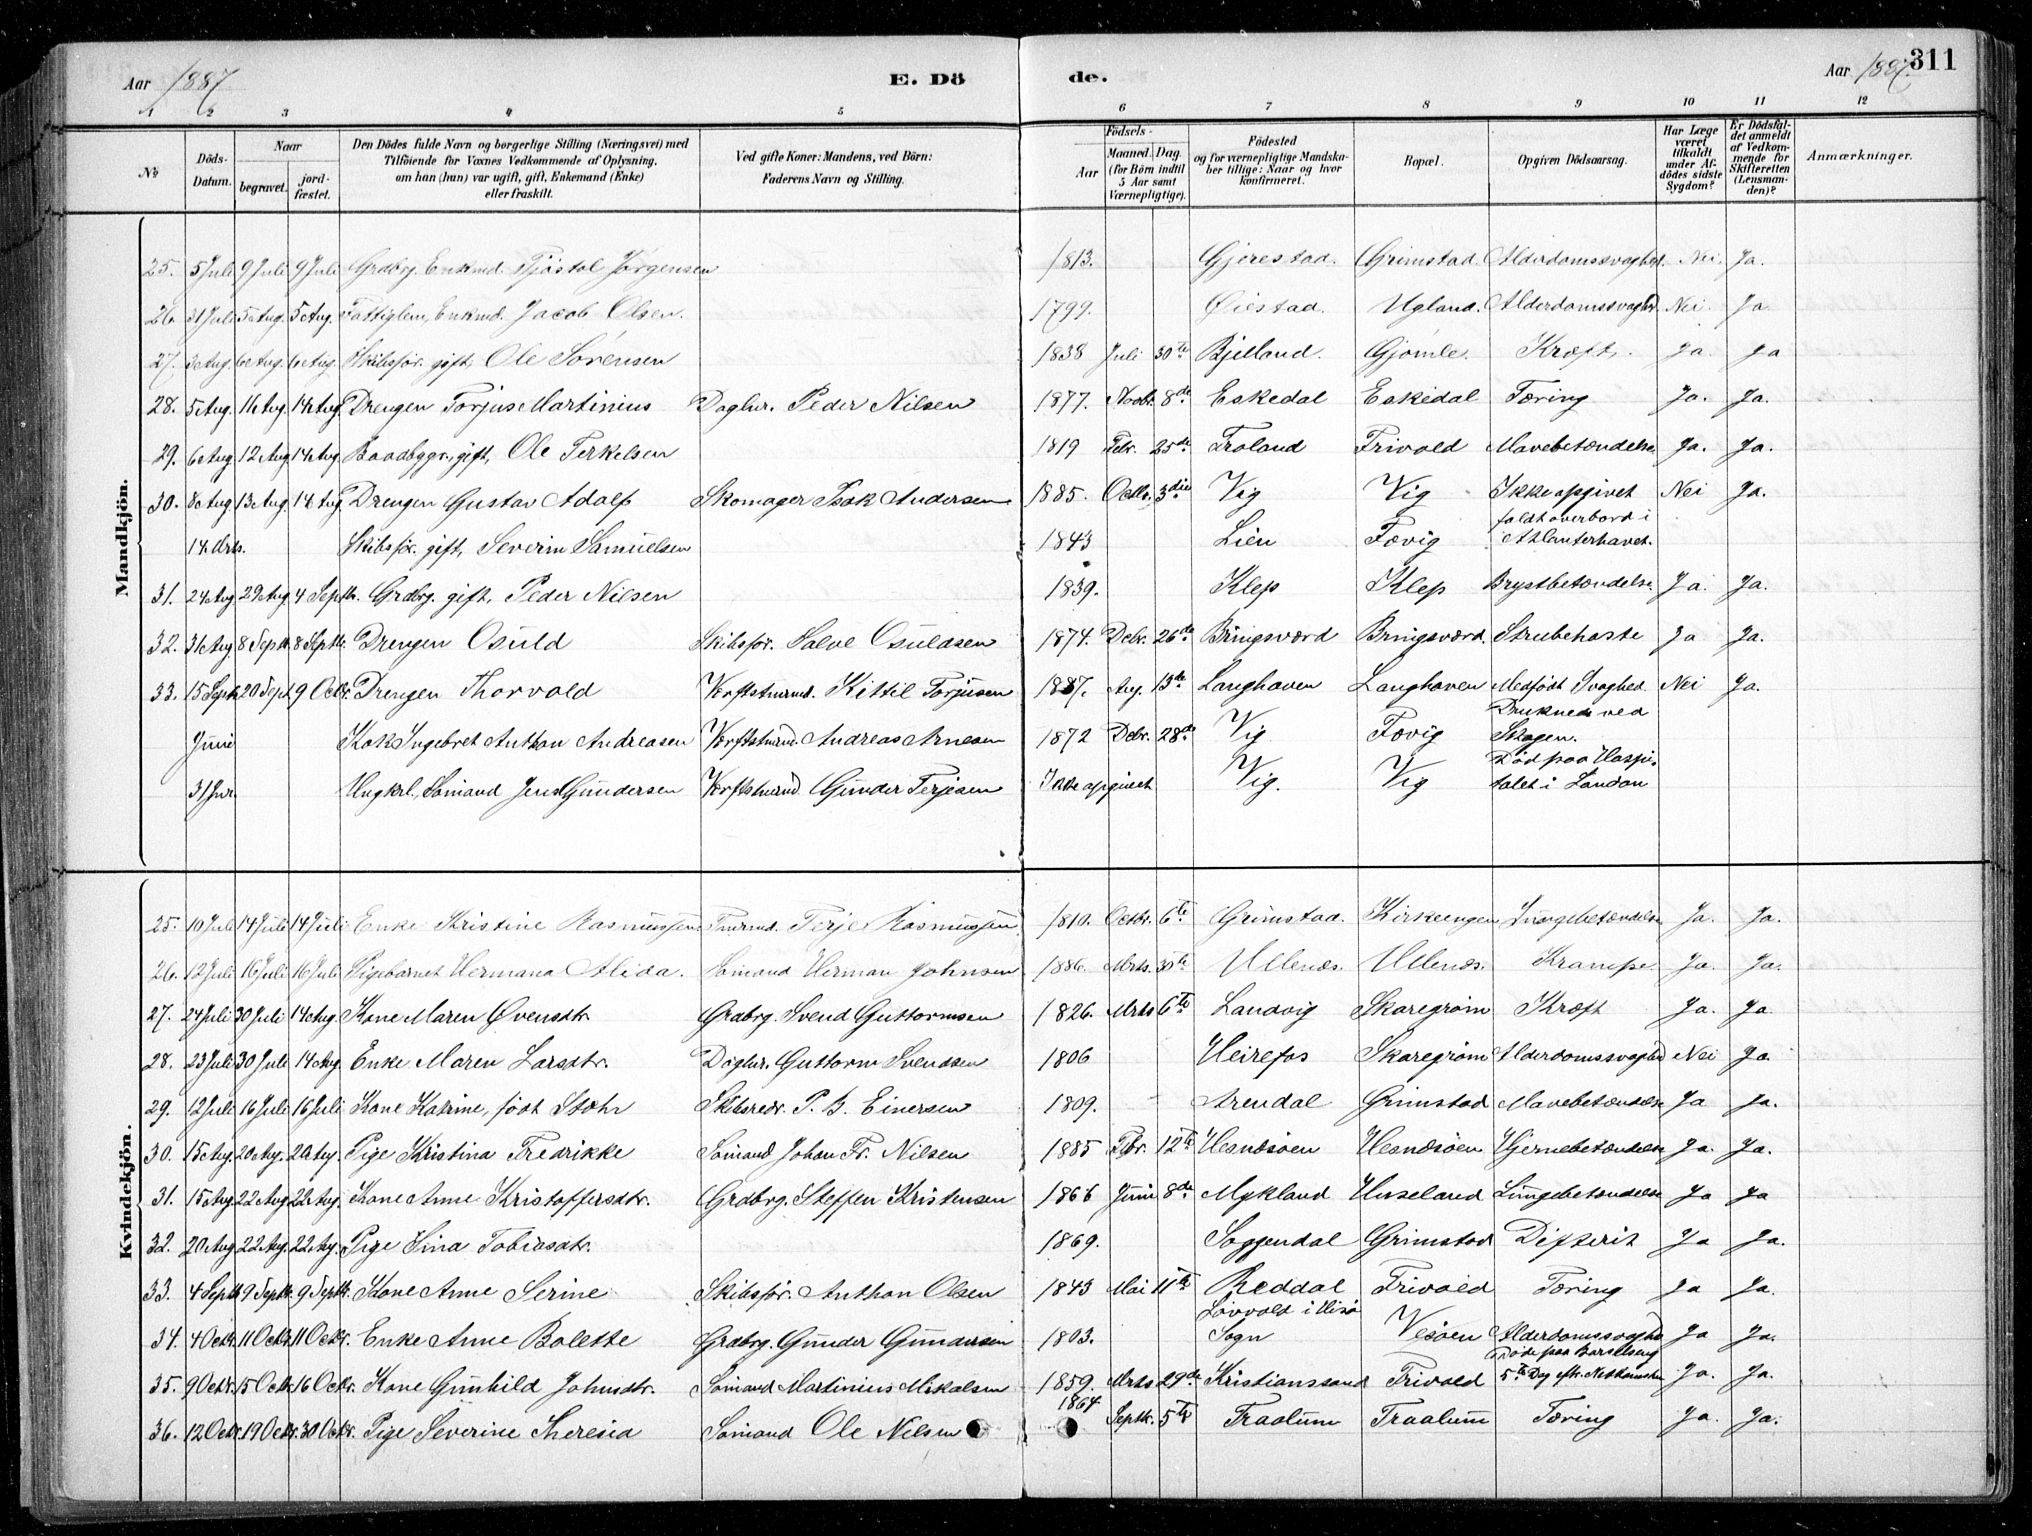 Aar 1887. E. Dö de. Aar 1887. 311
1 2 3 4 5 6 7 8 9 10 11 12
№ Döds-Datum. Naar begravet. jord-fæstet. Den Dödes fulde Navn og borgerlige Stilling (Næringsvei) med Tilföiende for Voxnes Vedkommende af Oplysning, om han (hun) var ugift, gift, Enkemand (Enke) eller fraskilt. Ved gifte Koner: Mandens, ved Börn: Faderens Navn og Stilling. Födsels- Aar Maaned. Dag. (for Börn indtil 5 Aar samt Værnepligtige). Födested og for værnepligtige Mandskaber tillige: Naar og hvor konfirmeret. Bopæl. Opgiven Dödsaarsag. Har Læge været tilkaldt under Afdödes sidste Sygdom? Er Dödsfaldet anmeldt af Vedkommende for Skifteretten (Lensmanden)? Anmærkninger.
Mandkjön.
25. 5 Juli 9 Juli 9 Juli Grdbrg. Enkmd. Tjöstol Jørgensen 1813. Gjerestad. Grimstad. Alderdomssvaghed. Nei. Ja.
26. 31 Juli 5 Aug. 5 Aug. Fattiglem, Enkmd. Jacob Olsen. 1799. Øiestad. Ugland. Alderdomssvaghed. Nei. Ja
27. 3 Aug. 6 Aug. 6 Aug. Skibsför. gift, Ole Sørensen 1838 Juli 30te Bjelland. Gjømle. Kræft. Ja. Ja
28. 5 Aug. 14 Aug. 14 Aug. Drengen Torjus Martinius Daglnr. Peder Nilsen 1877. Novbr. 8de Eskedal Eskedal Tæring Ja. Ja.
29. 6 Aug. 12 Aug. 14 Aug. Baadbyggr., gift, Ole Terkelsen 1819 Febr. 25de Froland Frivold Mavebetændelse Ja. Ja.
30. 8 Aug. 13 Aug. 14 Aug. Drengen Gustav Adolf Skomager Isak Andersen 1885. Octbr. 3die Vig Vig Ikke opgivet Nei Ja.
14 Mrts. Skibsför. gift, Severin Samuelsen 1843 Lien Fævig faldt overbord i Athlanterhavet.
31. 24 Aug. 29 Aug. 4 Septbr. Grdbrg. gift, Peder Nilsen 1839. Klep Klep Brystbetændelse Ja. Ja.
32. 31 Aug. 8 Septbr. 8 Septbr. Drengen Osuld Skibsför. Salve Osuldsen 1874. Debr. 26de Bringsværd Bringsværd. Strubehoste Ja Ja.
33. 15 Septbr. 20 Sept. 9 Octbr. Drengen Thorvald Værftstmrmd. Kittil Torjusen 1887. Aug. 13de Langhaven Langhaven Medfødt Svaghed. Nei Ja.
Juni Kok Ingebret Anthon Andreasen Værftstmrmd. Andreas Arnesen 1872 Debr. 28de Vig Fævig Druknede ved Skagen.
31 Jnr. Ungkrl. Sömand Jens Gundersen Værftstmrmd. Gunder Terjesen Ikke opgivet Vig. Vig Död paa Hospitalet i London
Kvindekjön.
25. 10 Juli 14 Juli 14 Juli Enke Kristine Rasmussen Tmrmd. Terje Rasmussen 1810. Octbr. 6te Grimstad. Kirkeengen Lungebetændelse Ja. Ja.
26. 12 Juli 16 Juli 16 Juli Pigebarnet Hermana Alida. Sömand Herman Johnsen 1886. Mrts. 30te Ullenæs. Ullenæs. Krampe. Ja. Ja.
27. 24 Juli 30 Juli 14 Aug. Kone Maren Øvensdtr. Grdbrg. Svend Guttormsen 1826. Mrts 6te Landvig Skaregrøm Kræft Ja. Ja
28. 23 Juli 30 Juli 14 Aug. Enke Maren Larsdtr. Daglnr. Guttorm Svendsen 1806 Heirefos Skaregrøm Alderdomssvaghed Nei Ja.
29. 12 Juli 16 Juli 16 Juli Kone Katrine, født Støhr Skibsredr. P. B. Einersen 1809. Arendal Grimstad Mavebetændelse Ja Ja.
30. 15 Aug. 20 Aug. 20 Aug. Pige Kristina Fredrikke Sömand Johan Fr. Nilsen 1885 Fbr. 12te Hesnæsøen Hesnæsøen Hjernebetændelse Ja. Ja.
31. 15 Aug. 22 Aug. 22 Aug. Kone Anne Kristoffersdtr. Grdbrg. Steffen Kristensen 1866 Juni 8de Mykland Huseland Lungebetændelse Ja Ja
32. 20 Aug. 22 Aug. 22 Aug. Pige Sina Tobiasdtr. 1869. Soggendal Grimstad Difterit Ja Ja.
33. 4 Septbr. 9 Septbr. 9 Septbr. Kone Anne Serine Skibsför. Anthon Olsen 1843 Mai 11te Reddal Frivold Tæring Ja Ja.
34. 4 Octbr. 11 Octbr. 11 Octbr. Enke Anne Bolette Grdbrg. Gunder Gundersen 1803. Løvvold i Hisø Sogn Vesøen Alderdomssvaghed Ja Ja.
35. 9 Octbr. 15 Octbr. 16 Octbr. Kone Gunhild Johnsdtr. Sömand Martinius Mikalsen 1859. Mrts 29de Kristianssand Frivold Døde paa Barselseng 5te Dag eftr. Nedkomsten Ja. Ja.
36. 12 Octbr. 19 Octbr. 30 Octbr. Pige Severine Theresia Sömand Ole Nilsen 1864 Septbr. 5te Fraalum Fraalum Tæring Ja. Ja.